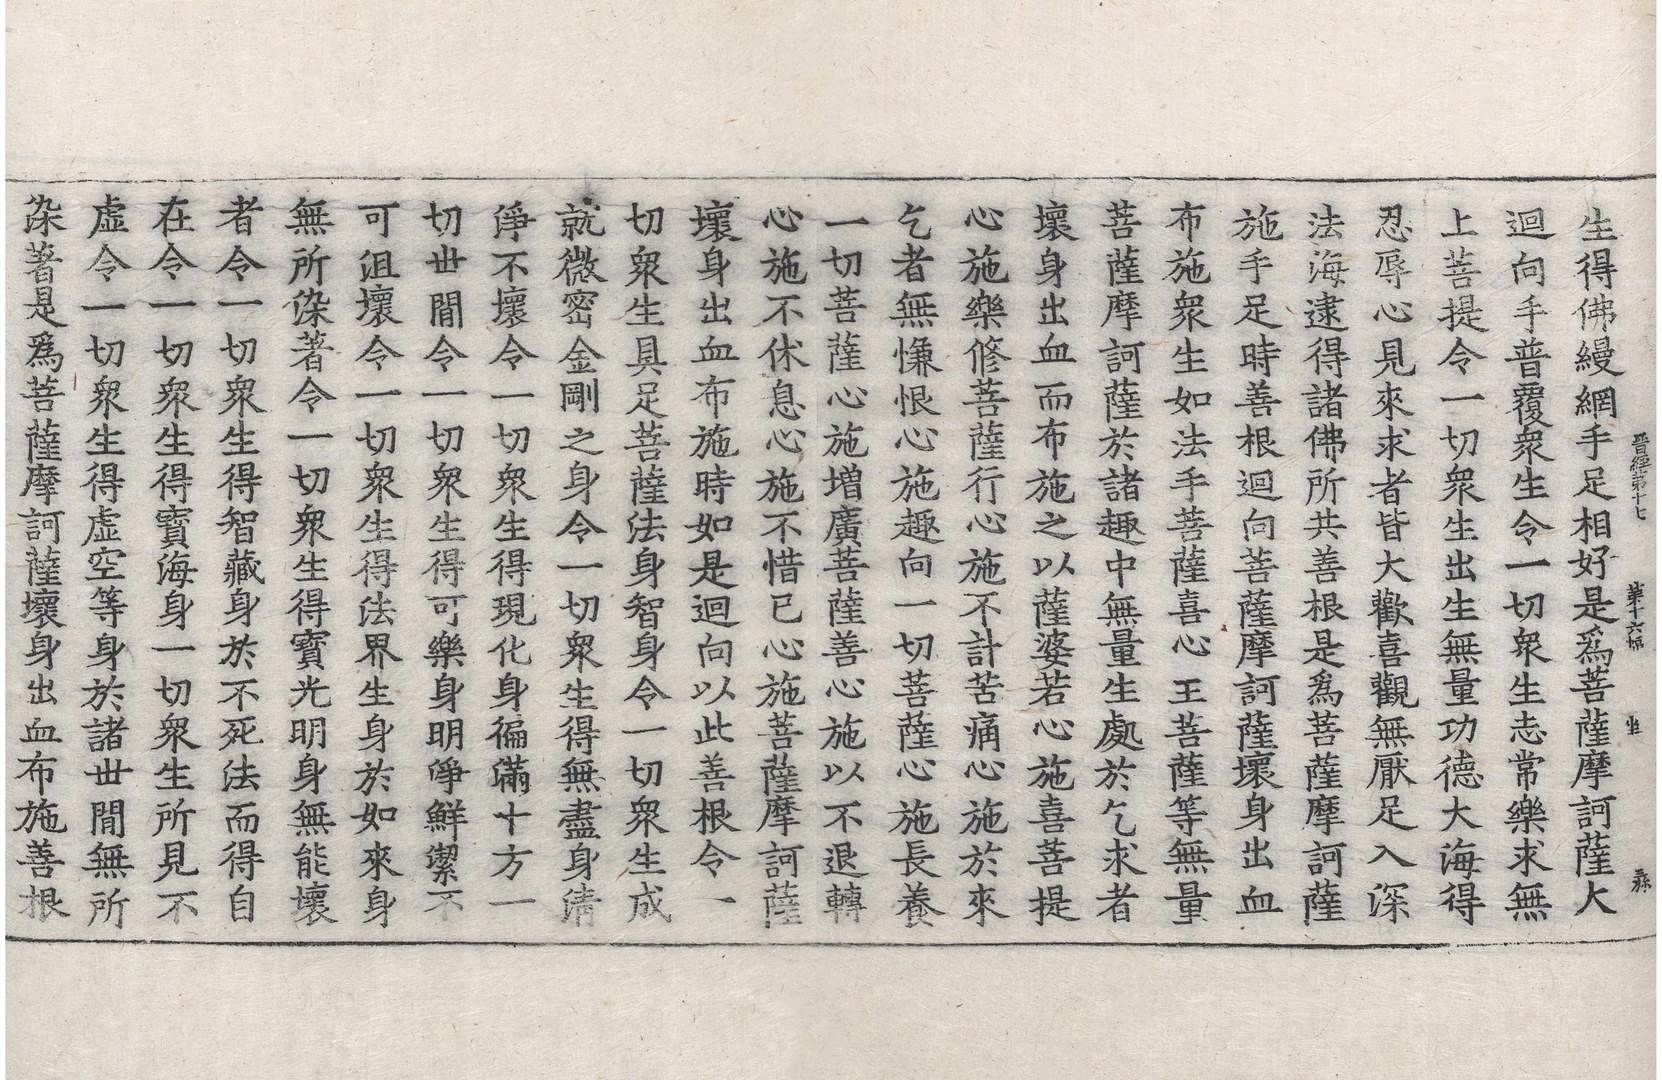 晋經第十七 第十六張 坐 弆
生得佛縵網手足相好是爲菩薩摩訶薩大
迴向手普覆衆生令一切衆生志常樂求無
上菩提令一切衆生出生無量功德大海得
忍辱心見來求者皆大歡喜觀無厭足入深
法海逮得諸佛所共善根是爲菩薩摩訶薩
施手足時善根迴向菩薩摩訶薩壞身出血
布施衆生如法手菩薩喜心王菩薩等無量
菩薩摩訶薩於諸趣中無量生處於乞求者
壞身出血而布施之以薩婆若心施喜菩提
心施樂修菩薩行心施不計苦痛心施於來
乞者無慊恨心施趣向一切菩薩心施長養
一切菩薩心施增廣菩薩善心施以不退轉
心施不休息心施不惜已心施菩薩摩訶薩
壞身出血布施時如是迴向以此善根令一
切衆生具足菩薩法身智身令一切衆生成
就微密金剛之身令一切衆生得無盡身清
淨不壞令一切衆生得現化身徧滿十方一
切世間令一切衆生得可樂身明淨鮮潔不
可沮壞令一切衆生得法界生身於如來身
無所染著令一切衆生得寶光明身無能壞
者令一切衆生得智藏身於不死法而得自
在令一切衆生得寶海身一切衆生所見不
虛令一切衆生得虛空等身於諸世間無所
染著是爲菩薩摩訶薩壞身出血布施善根